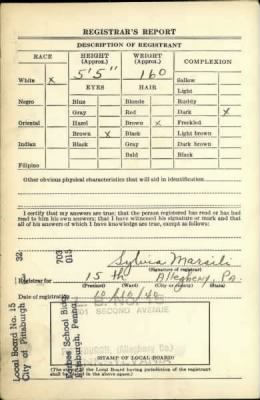 REGISTRAR'S REPORT
DESCRIPTION OF REGISTRANT
RACE
HEIGHT (Approx.)
WEIGHT (Approx.)
COMPLEXION
5'5" 160
White X
EYES HAIR
Sallow
Light
Negro Blue Blonde Ruddy
Gray Red Dark X
Oriental Hazel Brown X Freckled
Brown X Black Light brown
Indian Black Gray Dark brown
Bald Black
Filipino
Other obvious physical characteristics that will aid in identification
I certify that my answers are true; that the person registered has read or has had
read to him his own answers; that I have witnessed his signature or mark and that
all of his answers of which I have knowledge are true, except as follows:
Sylvia
(Signature of registrar)
Registrar for 15th Allegheny, Pa.
(Precinct) (Ward) (City or county) (State)
Date of registration 10/16/40
SECOND AVENUE
STAMP OF LOCAL BOARD
(The stamp of the Local Board having jurisdiction of the registrant
shall be placed in the above space.)
Local Board No. 15 32
City of Pittsburgh
703
015
Forbes School Bldg
Pittsburgh, Penna.